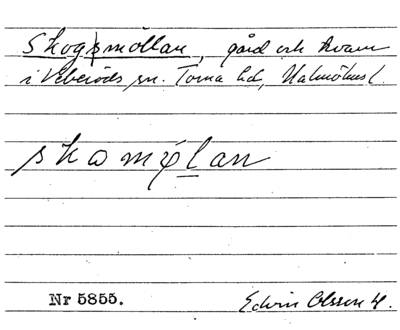 Skogsmöllan, gård och kvarn
i Veberöds sn. Torna hd, Malmöhus l.
skamǿlan
Nr 5855.
Edvin Olsson